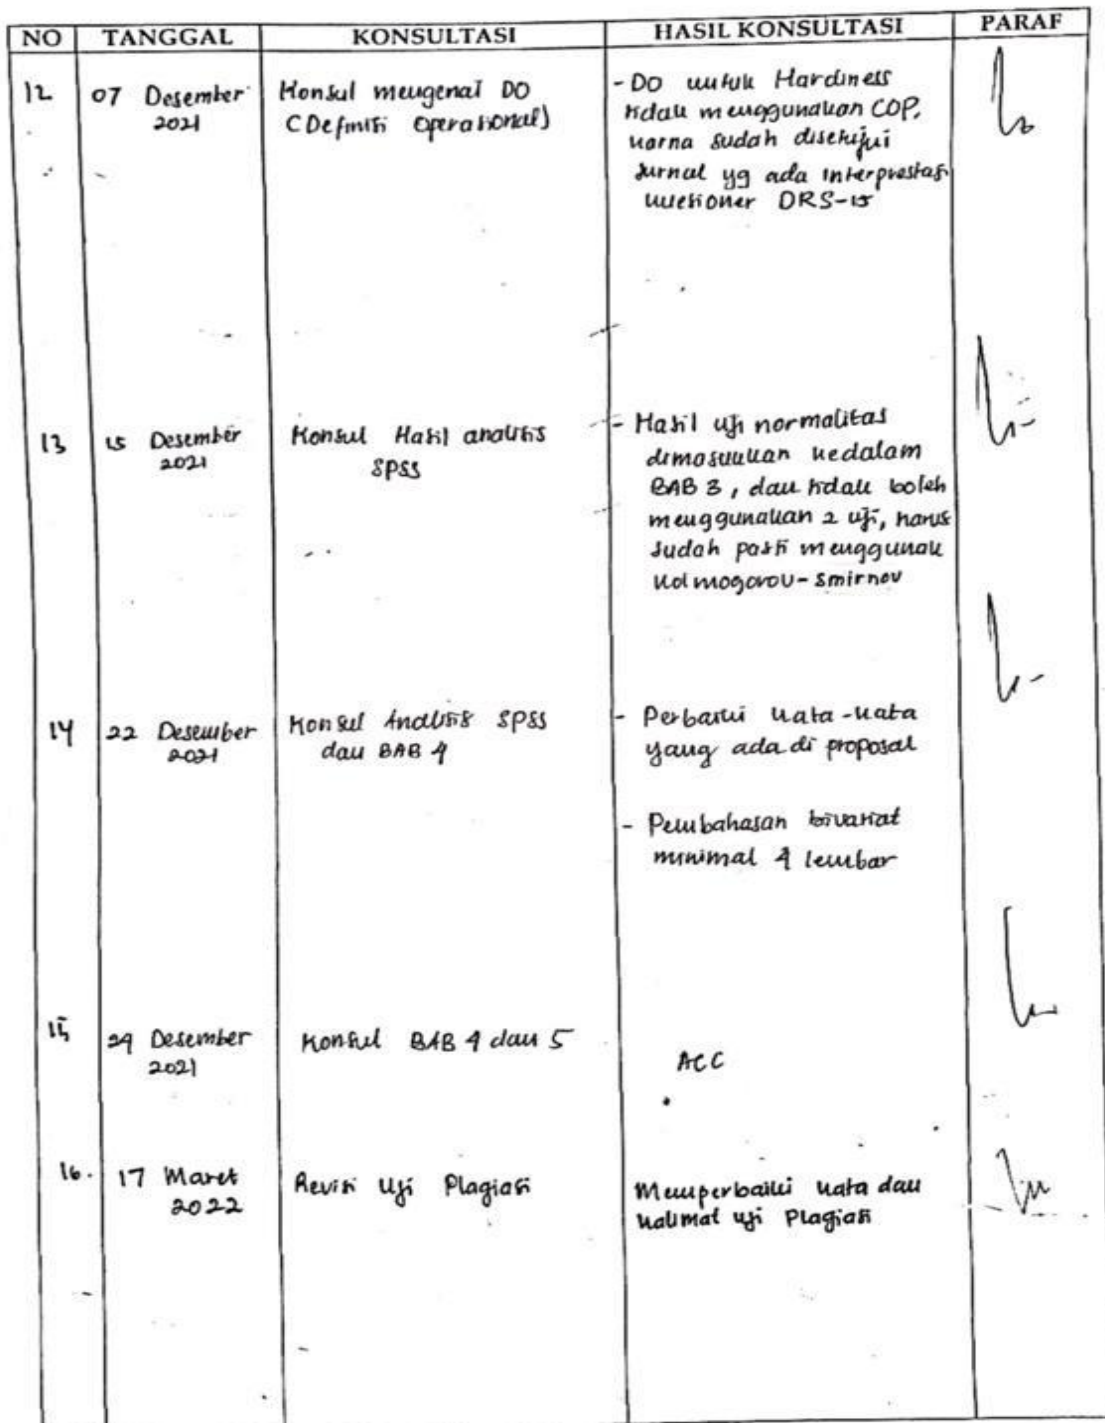 NO TANGGAL KONSULTASI HASIL KONSULTASI PARAF
12 07 Desember 2021
Konsul mengenai DO
(Definisi Operasional)
- DO untuk Hardiness
tidak menggunakan COP,
karna sudah disetujui
Jurnal yg ada interprestasi
kuesioner DRS-15
13 15 Desember 2021
Konsul Hasil analisis
SPSS
- Hasil uji normalitas
dimasukkan kedalam
BAB 3, dan tidak boleh
menggunakan 2 uji, harus
sudah pasti menggunak
Kolmogorov-Smirnov
14 22 Desember 2021
Konsul Analisis SPSS
dan BAB 4
- Perbaiki kata-kata
yang ada di proposal
- Pembahasan bivariat
minimal 4 lembar
15 29 Desember 2021
Konsul BAB 4 dan 5
ACC
16. 17 Maret 2022
Revisi Uji Plagiasi
Memperbaiki kata dan
kalimat uji Plagiasi